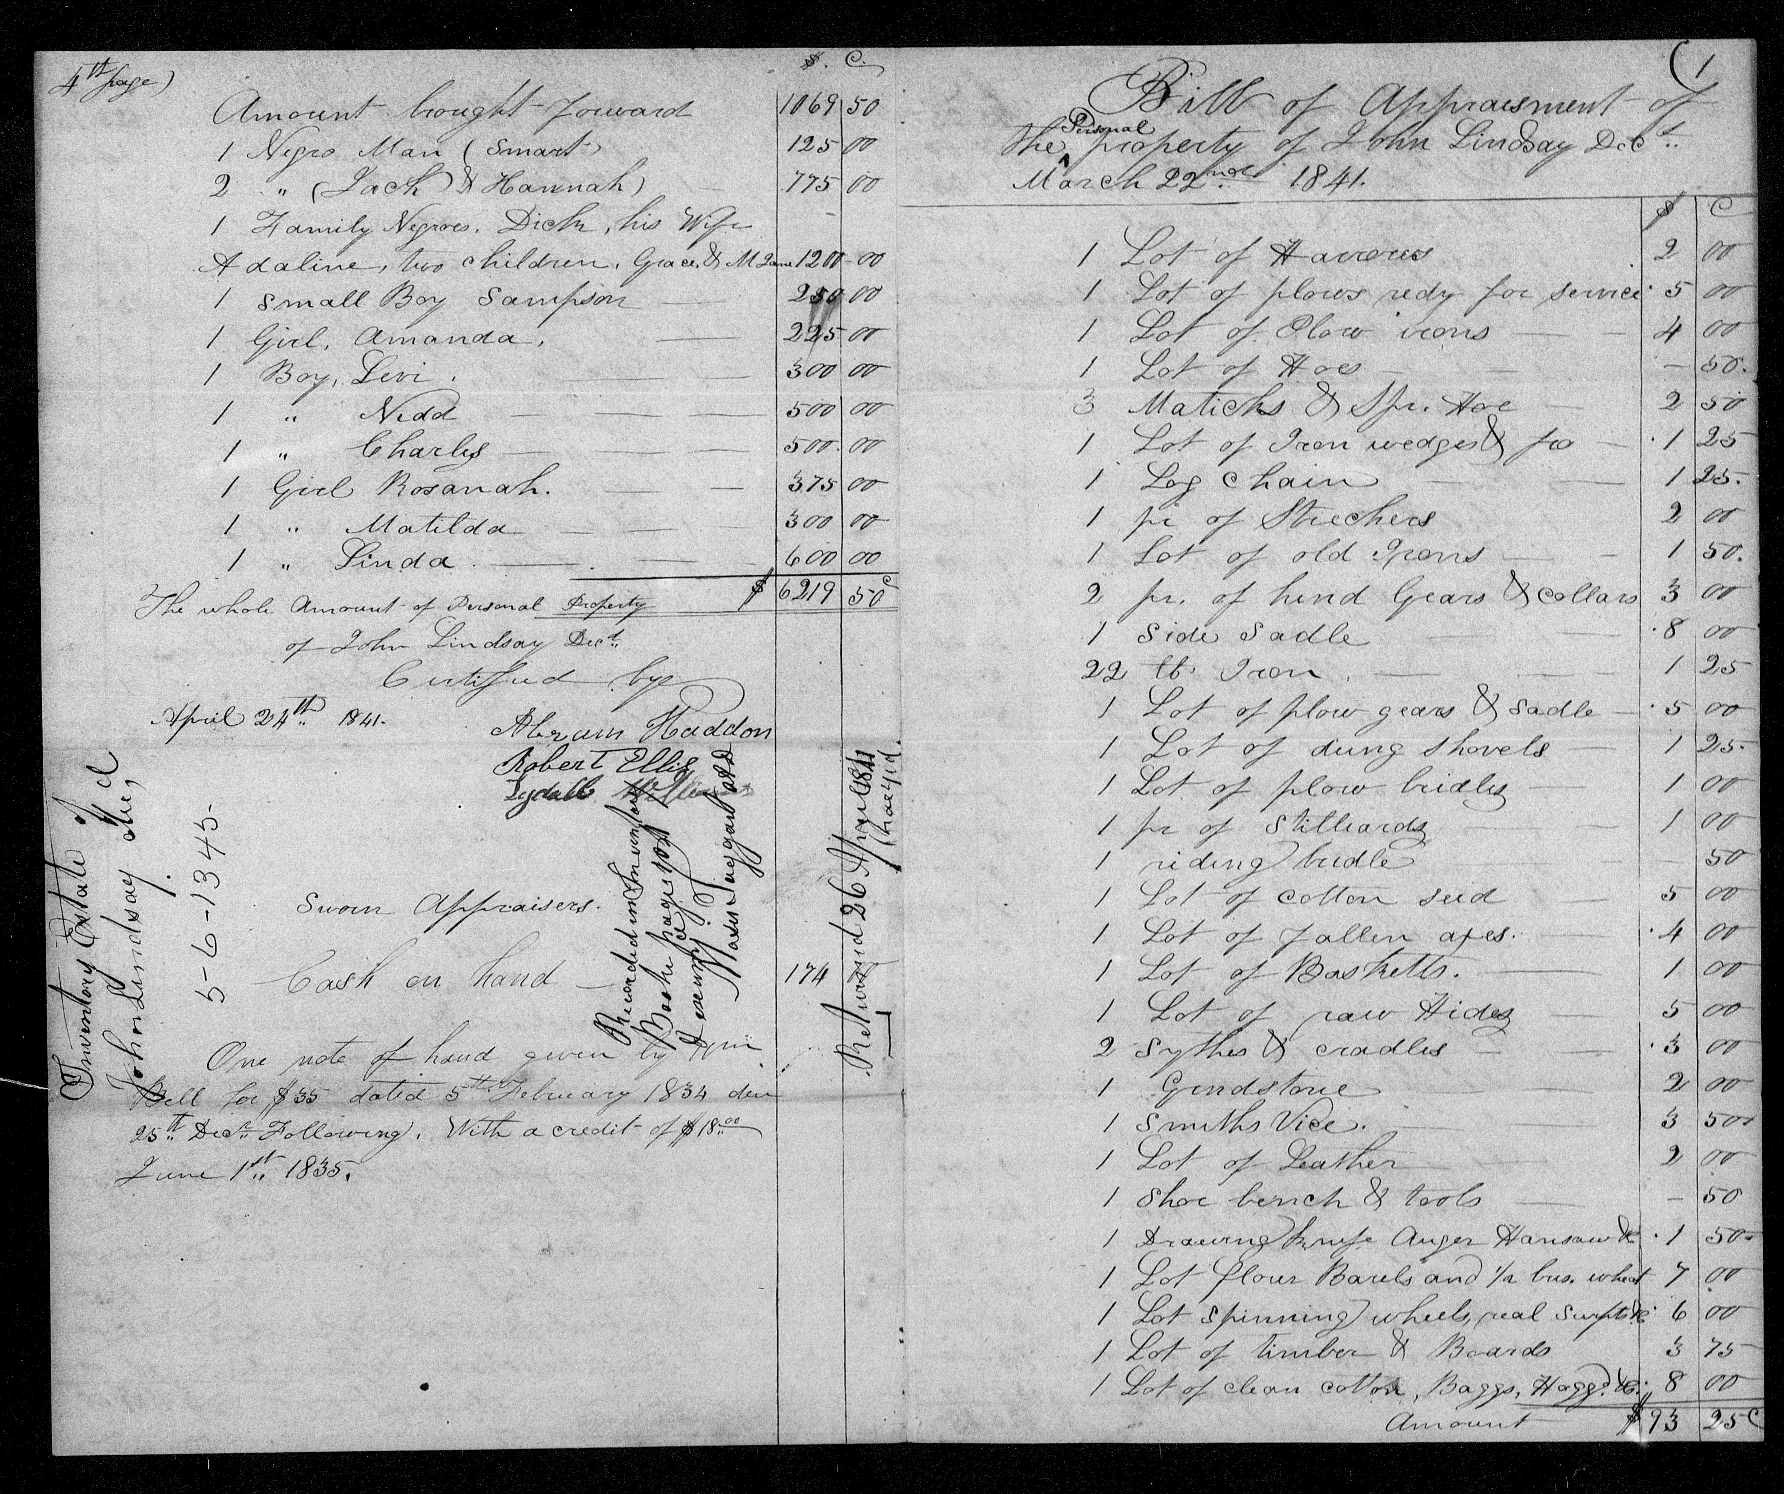 4th page)
$. C.
Amount brought forward 1069 50
1 Negro Man (Smart) 125 00
2 " (Jack & Hannah) 775 00
1 Family Negroes. Dick, his Wife
Adaline, two children, Grace, & M Jane 1200 00
1 small Boy Sampson 250 00
1 Girl, Amanda, 225 00
1 Boy, Levi. 300 00
1 " Nedd 500 00
1 " Charles 500 00
1 Girl Rosanah. 375 00
1 " Matilda 300 00
1 " Linda 600 00
$ 6219 50 c
The whole Amount of Personal Property
of John Lindsay Dect.
Certifued bye
April 24th 1841.
Abram Haddon
Robert Ellis
Lydall
Sworn Appraisers.
Cash on hand 174
One note of hand given by Wm
Bell for $35 dated 5th February 1834 due
25th Dec. Following. With a credit of $18.00
June 1st 1835.
Inventory Estate of
John Lindsay decd
5-6-1345
Recorded in Inventory
Book pages
Returned 26 April 1841
(1
Bill of Appraisment of
the Personal property of John Lindsay Dect.
March 22nd 1841.
$ C
1 Lot of Harrows 2 00
1 Lot of plows redy for service 5 00
1 Lot of Plow irons 4 00
1 Lot of Hoes - 50.
3 Maticks & Spr. Hoe 2 50
1 Lot of Iron wedges & fro 1 25
1 Log chain 1 25.
1 pr of Strechers 2 00
1 Lot of old Irons 1 50.
2 pr. of hind Gears & collars 3 00
1 Side Sadle 8 00
22 lb Iron. 1 25
1 Lot of plow gears & Sadle 5 00
1 Lot of dung shovels 1 25.
1 Lot of plow bridles 1 00
1 pr of Stilliards 1 00
1 riding bridle 50
1 Lot of cotton seed 5 00
1 Lot of fallen axes. 4 00
1 Lot of Basketts. 1 00
1 Lot of raw Hides 5 00
2 Sythes & cradles 3 00
1 Grindstone 2 00
1 Smiths Vice. 3 50
1 Lot of Leather 2 00
1 Shoe bench & tools - 50
1 Drawing knife Auger Hansaw &c 1 50
1 Lot flour Barels and 1/2 bus. wheat 7 00
1 Lot spinning wheels, real &c 6 00
1 Lot of timber & Boards 3 75
1 Lot of clean cotton, Baggs, Hoggs. &c. 8 00
Amount $93 25 C